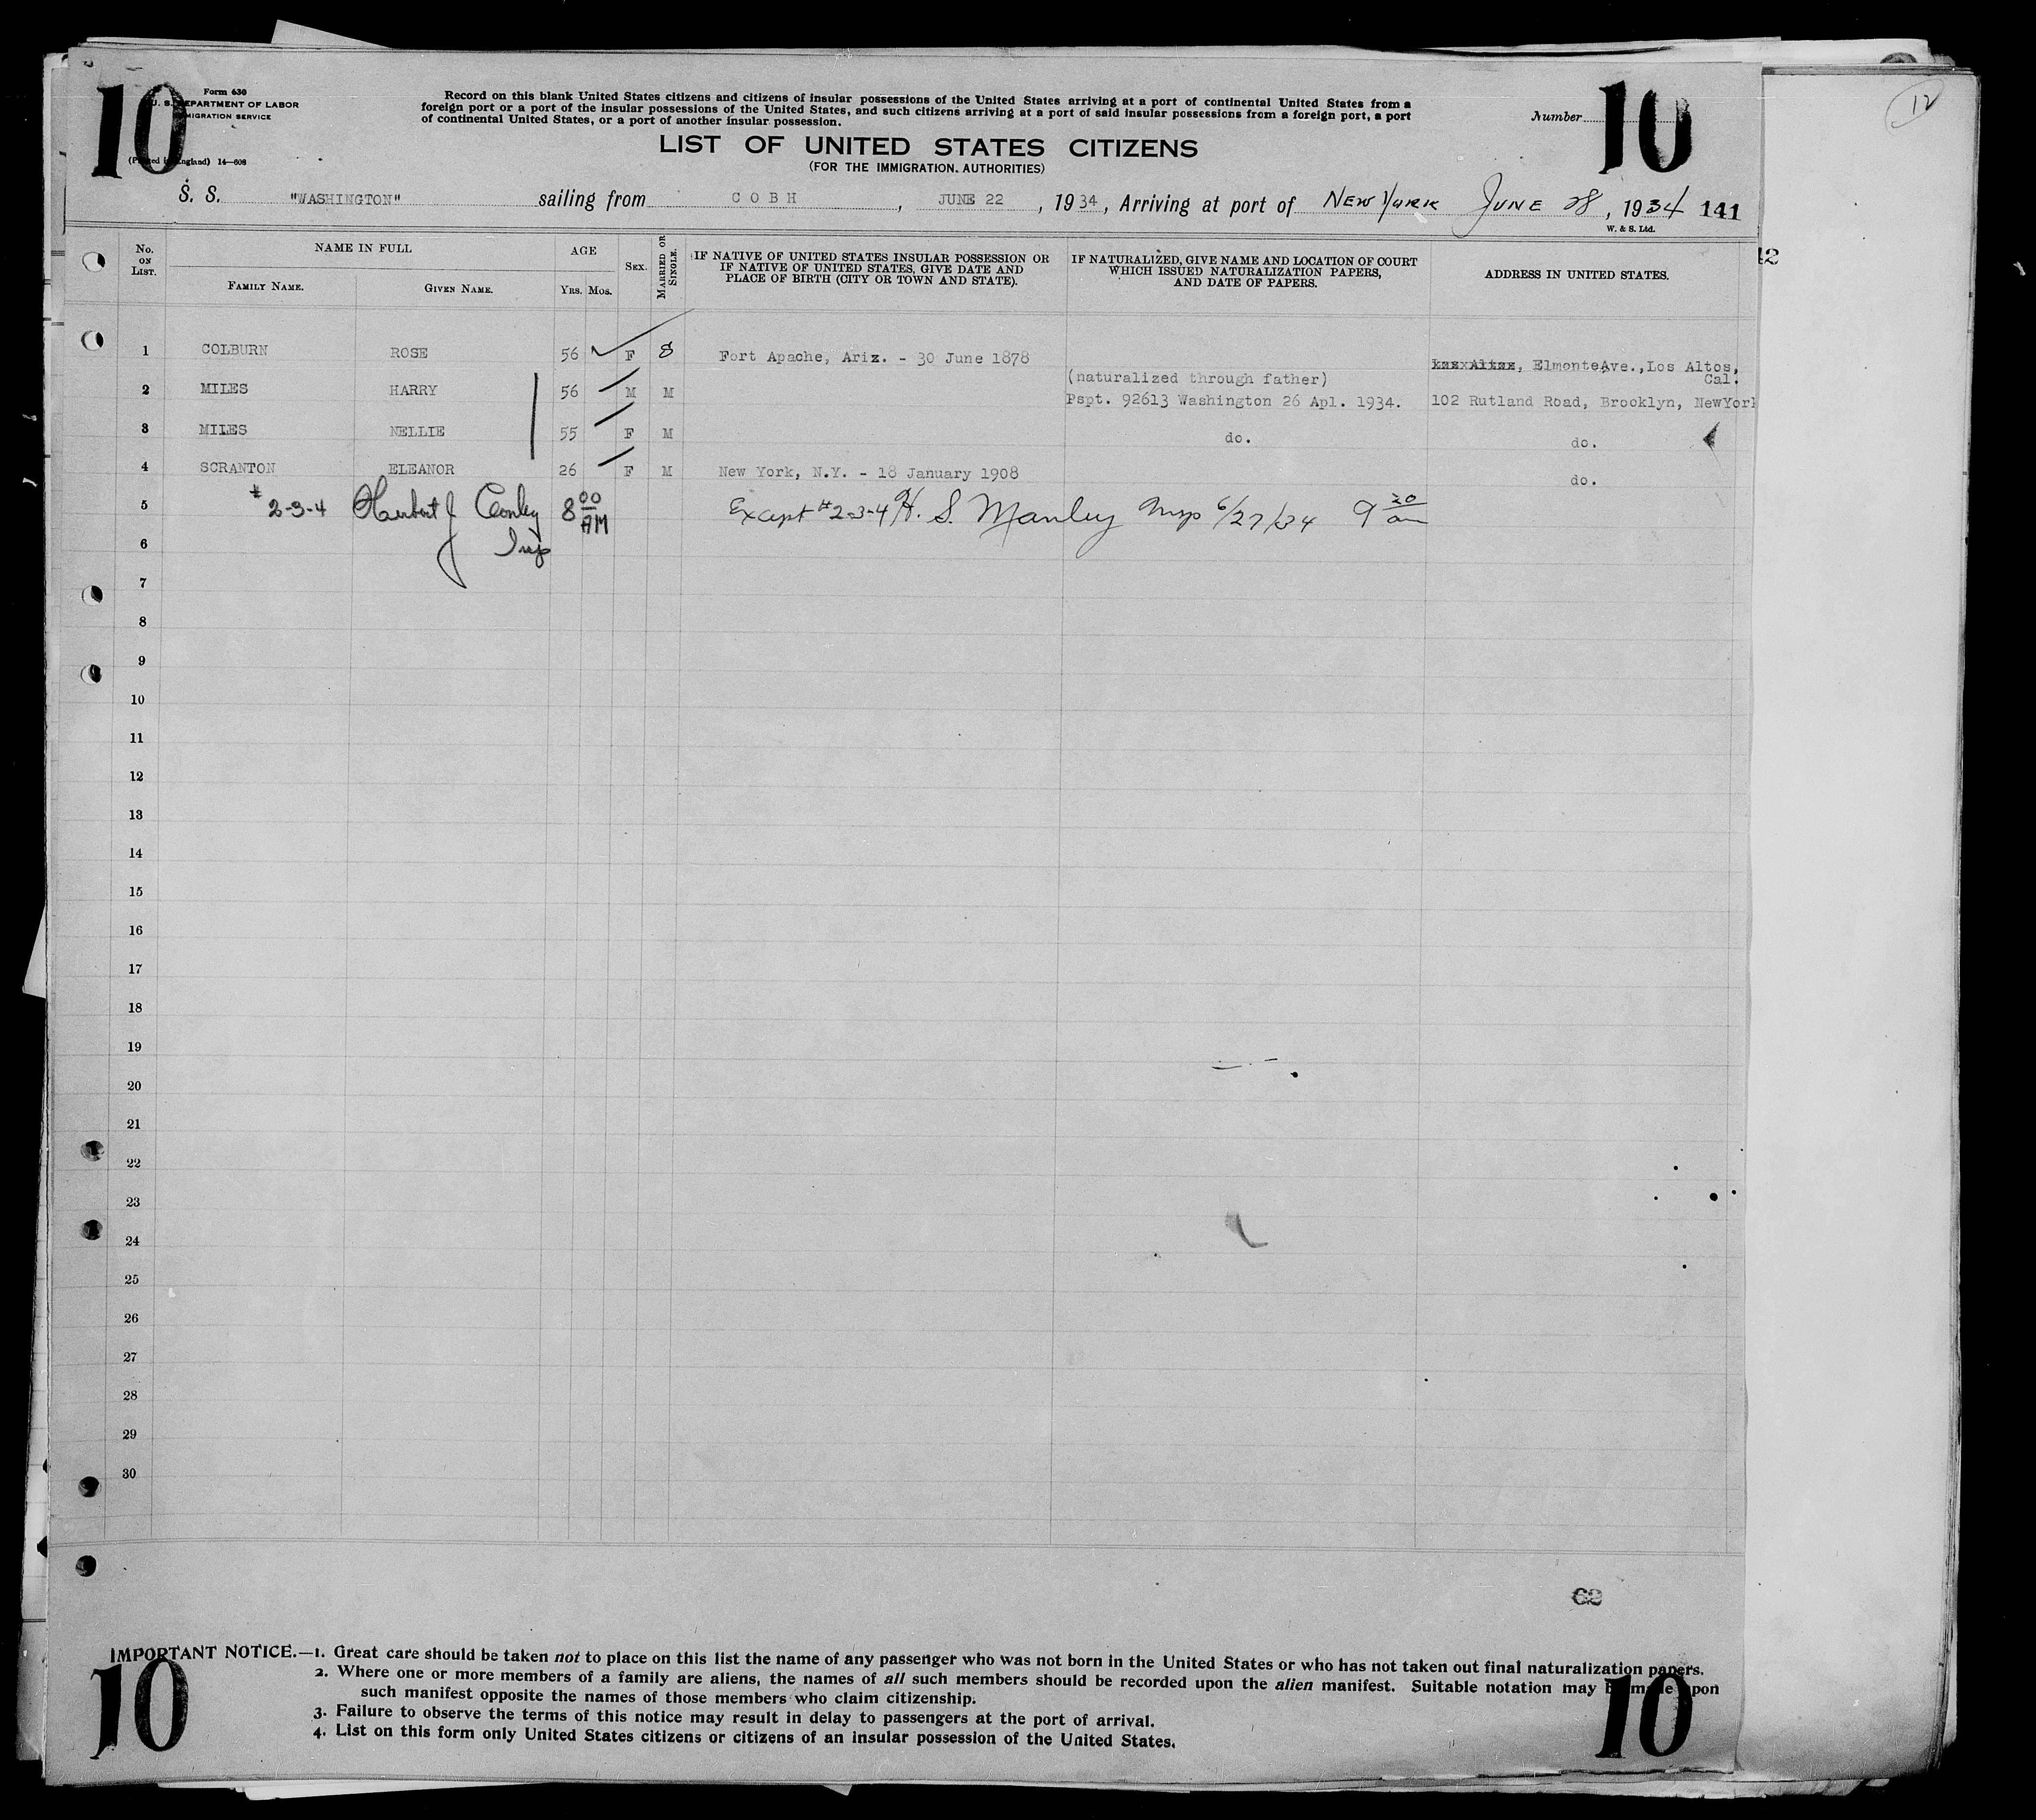 10
10
12
Form 630
U. S. DEPARTMENT OF LABOR
IMMIGRATION SERVICE
(Printed in England) 14—608
Record on this blank United States citizens and citizens of insular possessions of the United States arriving at a port of continental United States from a
foreign port or a port of the insular possessions of the United States, and such citizens arriving at a port of said insular possessions from a foreign port, a port
of continental United States, or a port of another insular possession.
Number
LIST OF UNITED STATES CITIZENS
(FOR THE IMMIGRATION AUTHORITIES)
S. S. "WASHINGTON" sailing from COBH, JUNE 22, 1934, Arriving at port of NEW YORK JUNE 28, 1934 141
W. & S. Ltd.
42
No. ON LIST.
NAME IN FULL
FAMILY NAME.
GIVEN NAME.
AGE
YRS. MOS.
SEX.
MARRIED OR SINGLE.
IF NATIVE OF UNITED STATES INSULAR POSSESSION OR
IF NATIVE OF UNITED STATES, GIVE DATE AND
PLACE OF BIRTH (CITY OR TOWN AND STATE).
IF NATURALIZED, GIVE NAME AND LOCATION OF COURT
WHICH ISSUED NATURALIZATION PAPERS,
AND DATE OF PAPERS.
ADDRESS IN UNITED STATES.
1 COLBURN ROSE 56 F S Fort Apache, Ariz. - 30 June 1878 , ElmonteAve.,Los Altos,
Cal.
(naturalized through father)
2 MILES HARRY 56 M M Pspt. 92613 Washington 26 Apl. 1934. 102 Rutland Road, Brooklyn, NewYork
3 MILES NELLIE 55 F M do. do.
4 SCRANTON ELEANOR 26 F M New York, N.Y. - 18 January 1908 do.
5 #2-3-4 Herbert J Conley 8 00 AM Except #2-3-4 H. S. Manley Insp 6/27/34 9 20 am
6 Insp
7
8
9
10
11
12
13
14
15
16
17
18
19
20
21
22
23
24
25
26
27
28
29
30
IMPORTANT NOTICE.—1. Great care should be taken not to place on this list the name of any passenger who was not born in the United States or who has not taken out final naturalization papers.
2. Where one or more members of a family are aliens, the names of all such members should be recorded upon the alien manifest. Suitable notation may be made upon
such manifest opposite the names of those members who claim citizenship.
3. Failure to observe the terms of this notice may result in delay to passengers at the port of arrival.
4. List on this form only United States citizens or citizens of an insular possession of the United States.
10
10